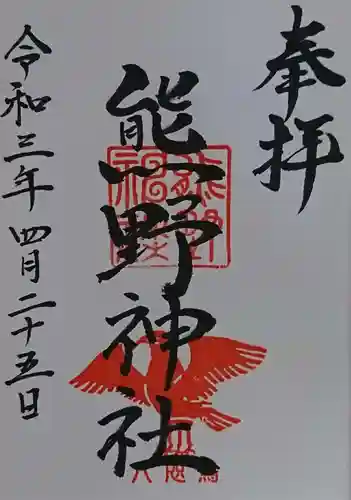 奉拝
熊野神社
令和三年四月二十五日